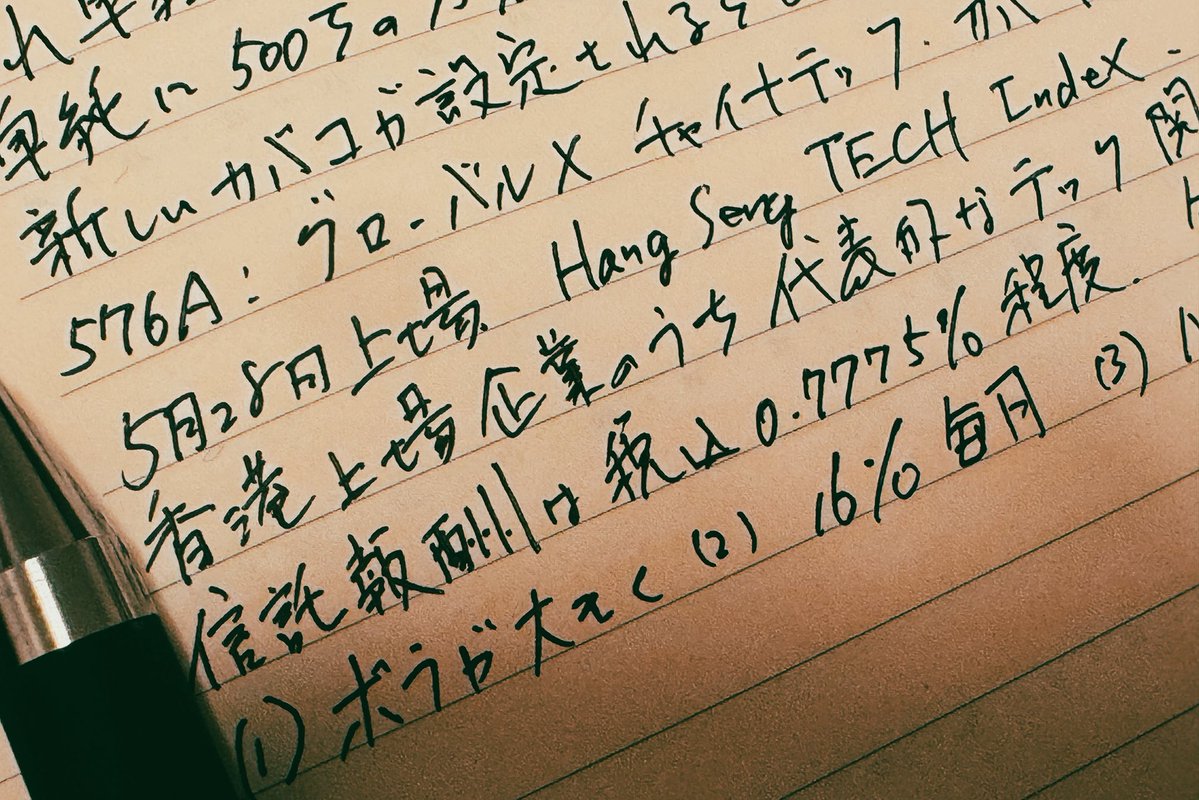 れ単
単純に500ずつの
新しいカバコが設定されるそ
576A: グローバルX チャイナテック・カバ
5月28日上場 Hang Seng TECH Index.
香港上場企業のうち代表的なテック関
信託報酬は税込0.7775%程度.
(1)ボラが大きく (2) 16%毎月 (3)